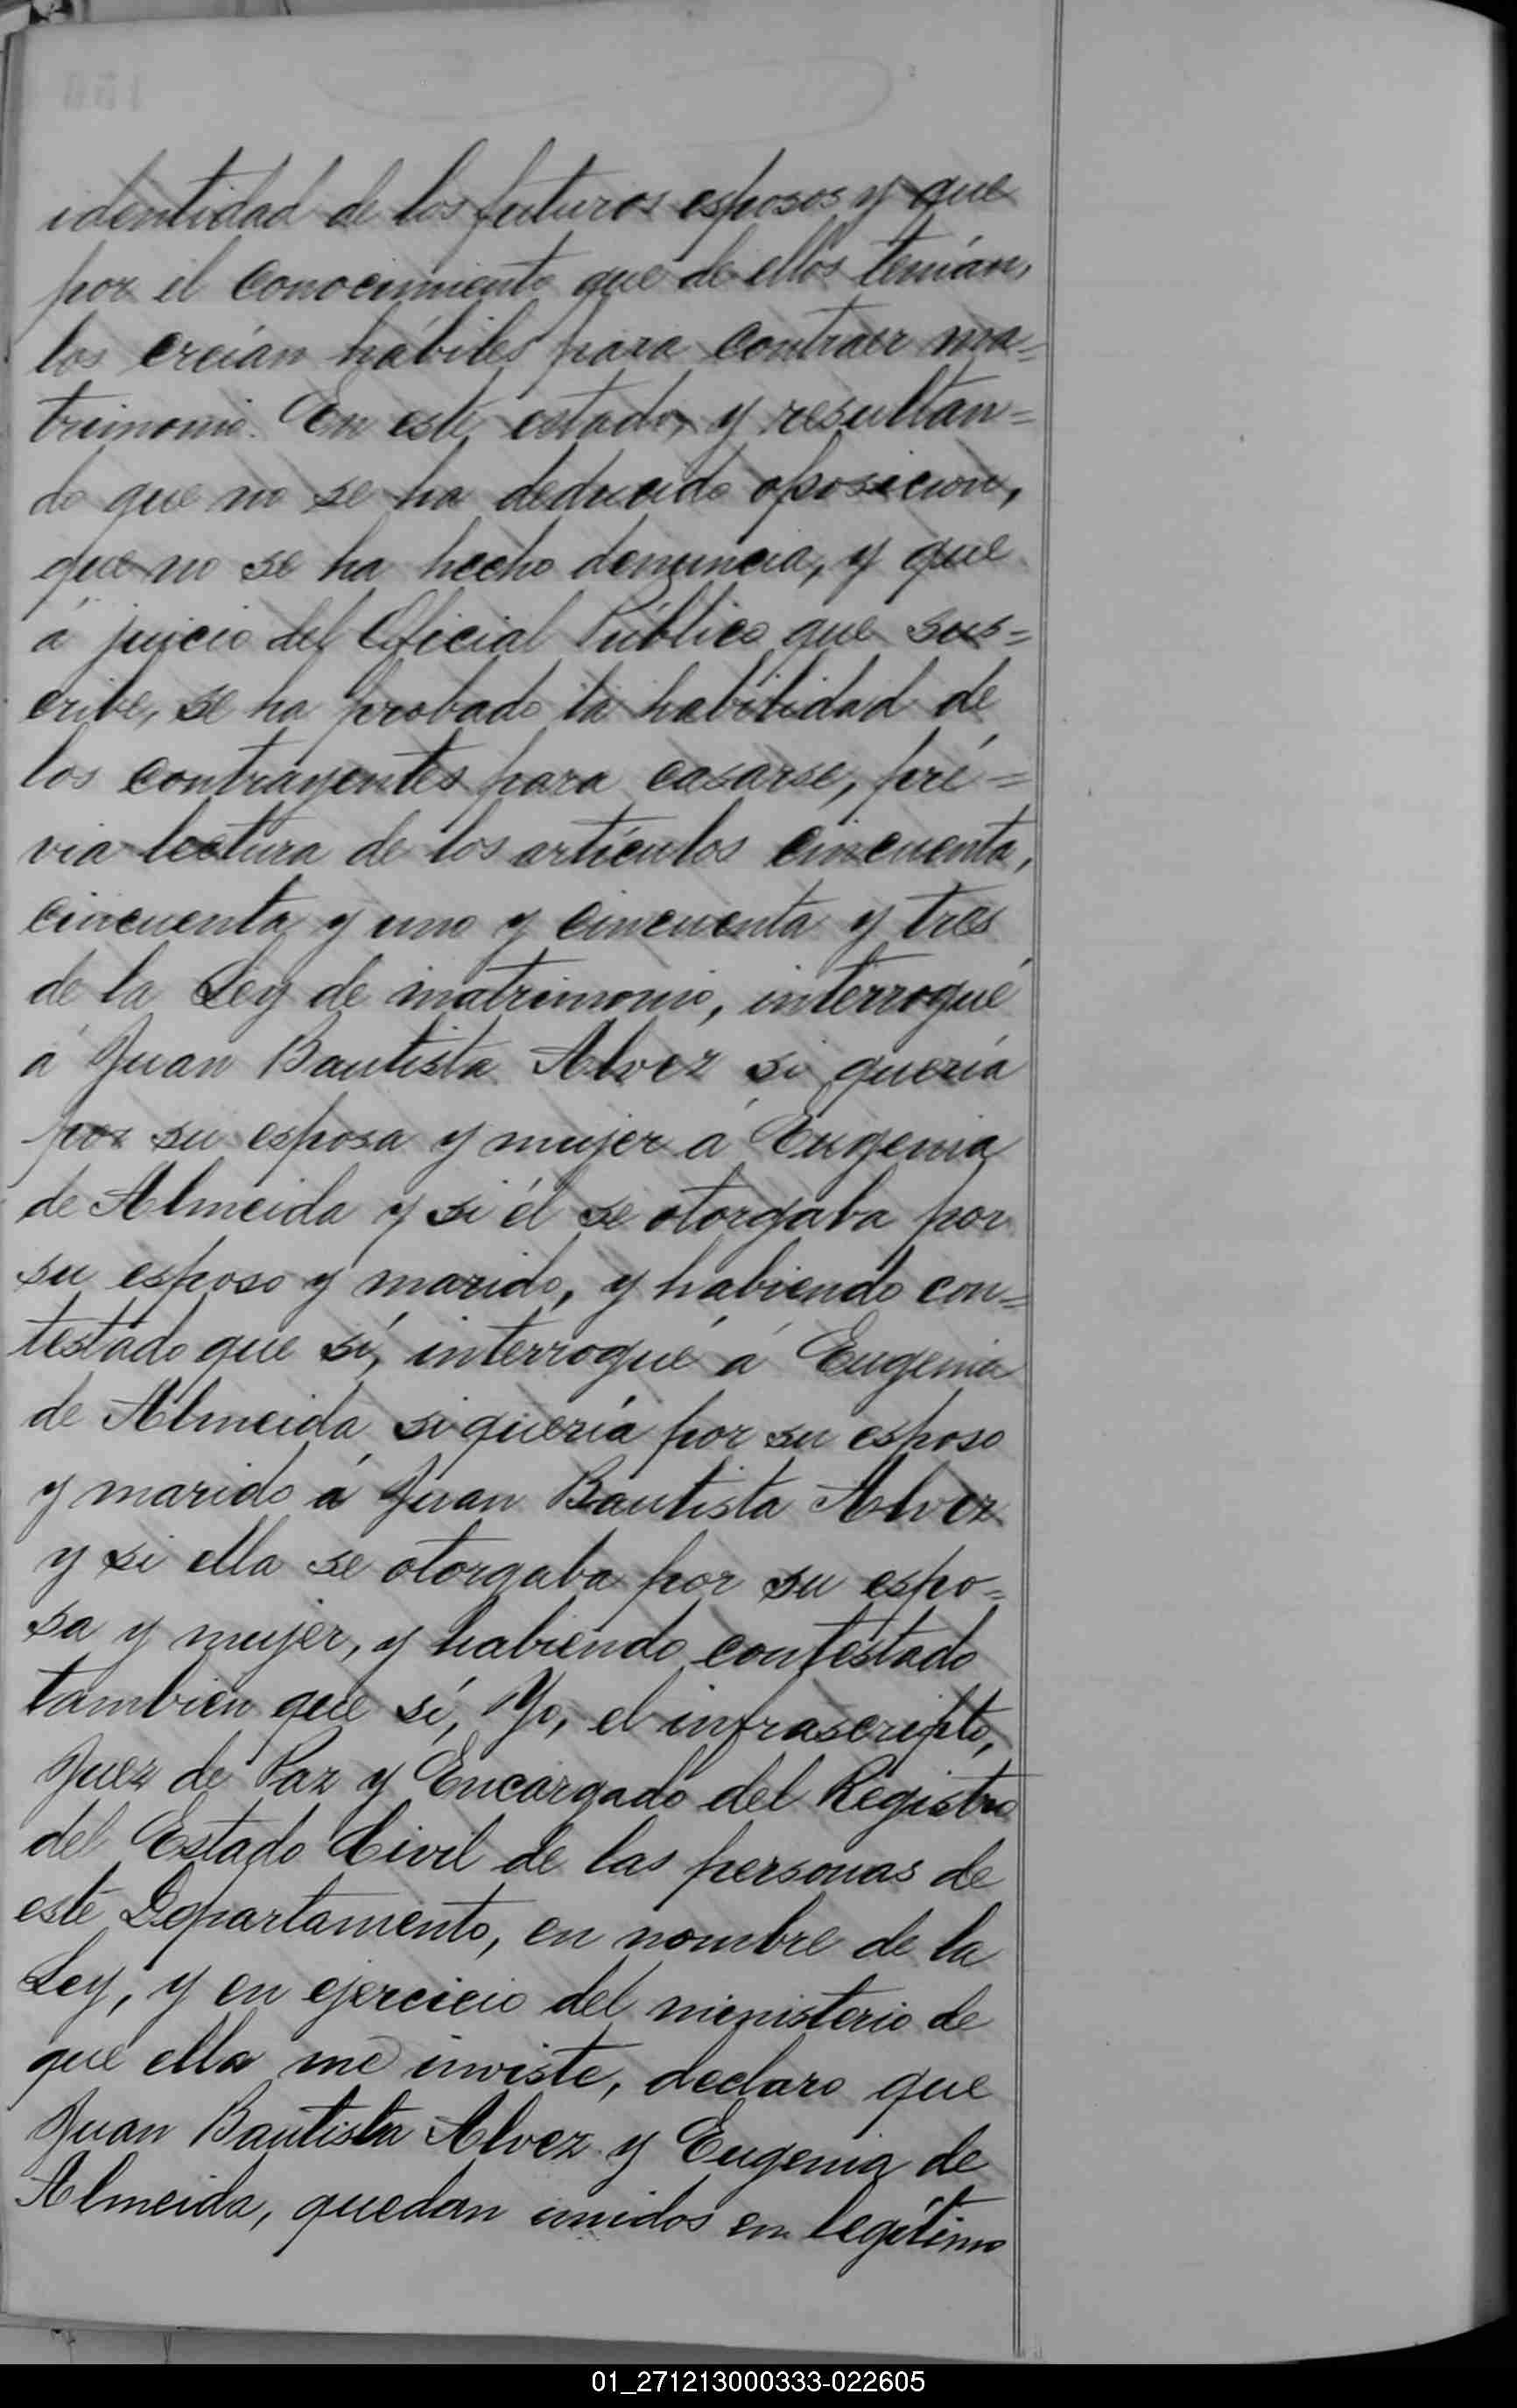 identidad de los futuros esposos y que
por el conocimiento que de ellos tenían,
los creían hábiles para contraer ma=
trimonio. En este estado, y resultan=
do que no se ha deducido oposicion,
que no se ha hecho denuncia, y que
á juicio del Oficial Público que sus=
cribe, se ha probado la habilidad de
los contrayentes para casarse, pré=
via lectura de los artículos cincuenta,
cincuenta y uno y cincuenta y tres
de la Ley de matrimonio, interrogué
á Juan Bautista Alvez si quería
por su esposa y mujer á Eugenia
de Almeida y si él se otorgaba por
su esposo y marido, y habiendo con=
testado que sí, interrogué á Eugenia
de Almeida si quería por su esposo
y marido á Juan Bautista Alvez
y si ella se otorgaba por su espo=
sa y mujer, y habiendo contestado
tambien que sí, Yo, el infrascripto,
Juez de Paz y Encargado del Registro
del Estado Civil de las personas de
este Departamento, en nombre de la
Ley, y en ejercicio del ministerio de
que ella me inviste, declaro que
Juan Bautista Alvez y Eugenia de
Almeida, quedan unidos en legítimo
01_271213000333-022605